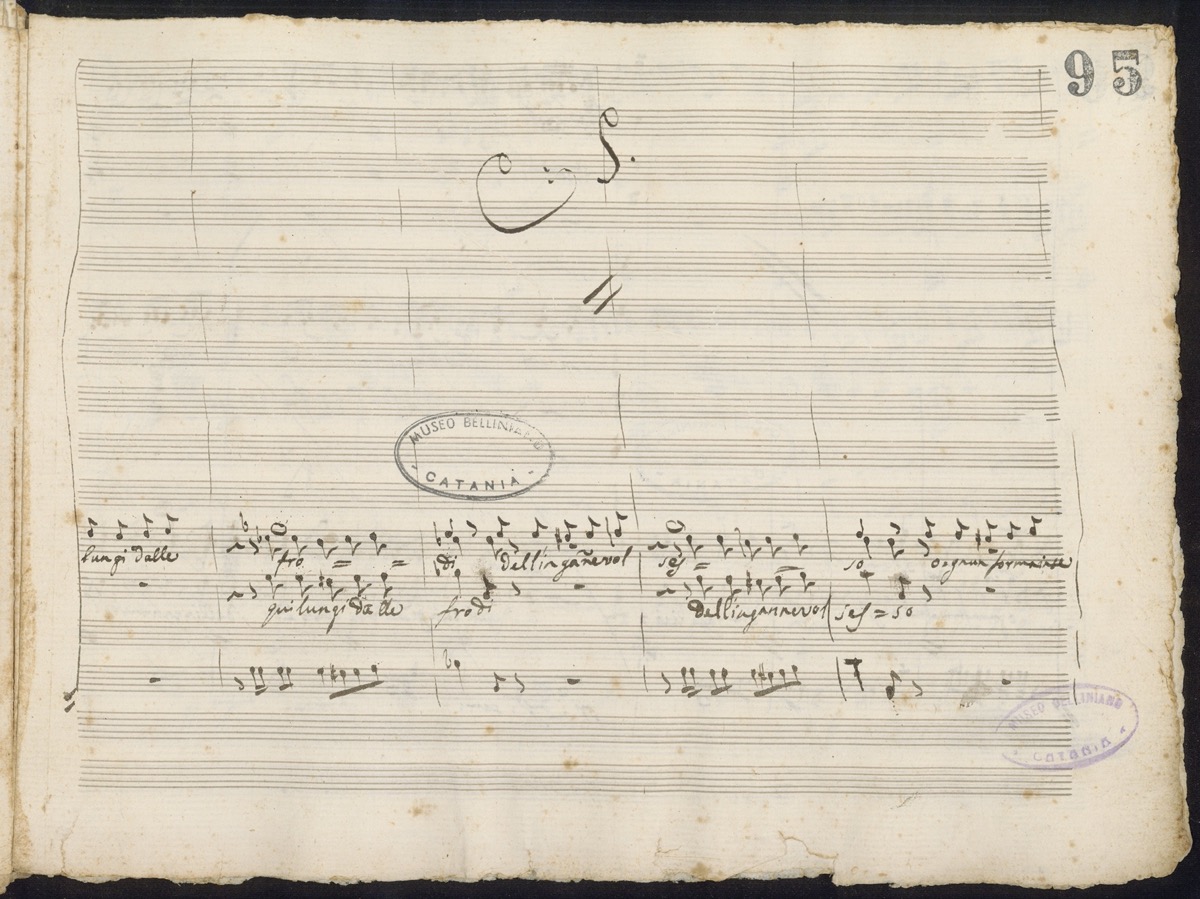 95
Co: S.
MUSEO BELLINIANO
CATANIA
lungi dalle fro = = di dell'ingañevol ses = so
qui lungi dalle frodi dell'ingannevol ses = so
MUSEO BELLINIANO
CATANIA